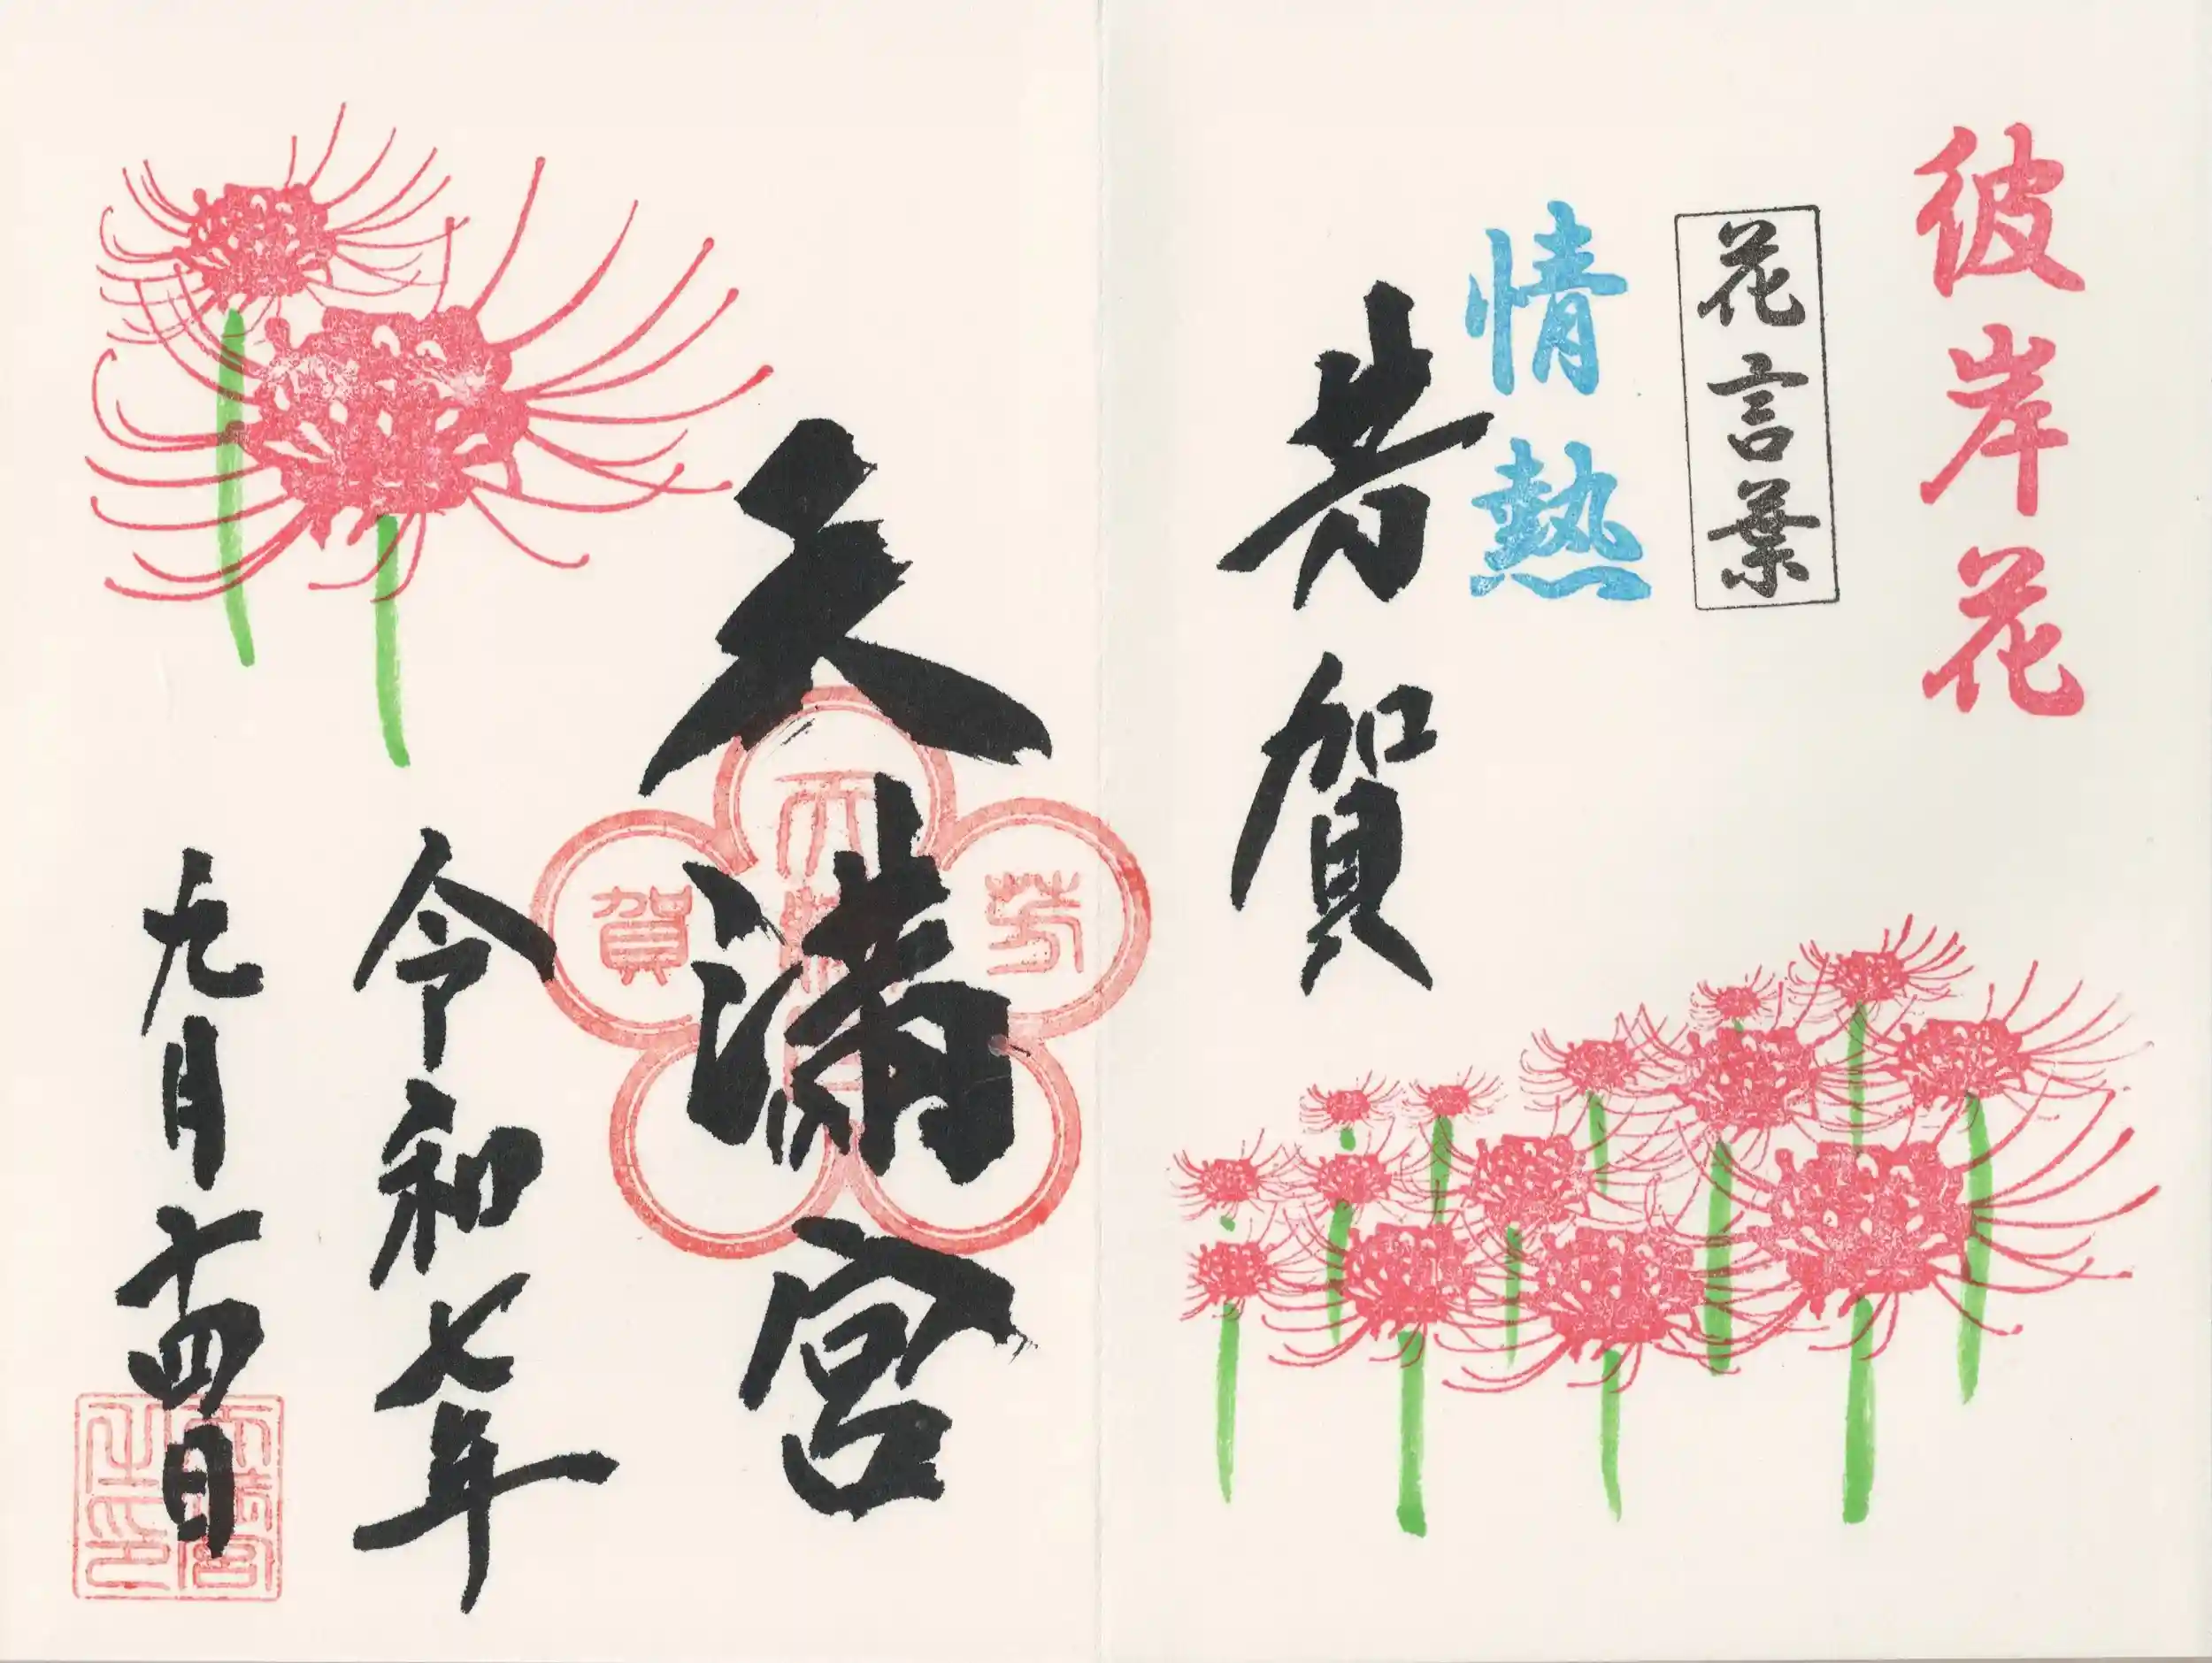 彼岸花
花言葉
情熱
芳賀
天満宮
天満宮
芳
賀
令和七年
九月十四日
天満宮
之印